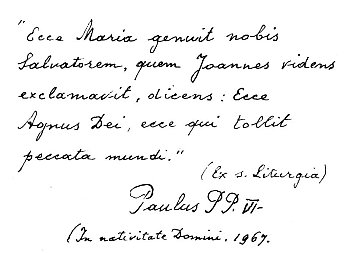 "Ecce Maria genuit nobis
Salvatorem, quem Joannes videns
exclamavit, dicens: Ecce
Agnus Dei, ecce qui tollit
peccata mundi."
(Ex s. Liturgia)
Paulus PP. VI-
(In nativitate Domini. 1967.